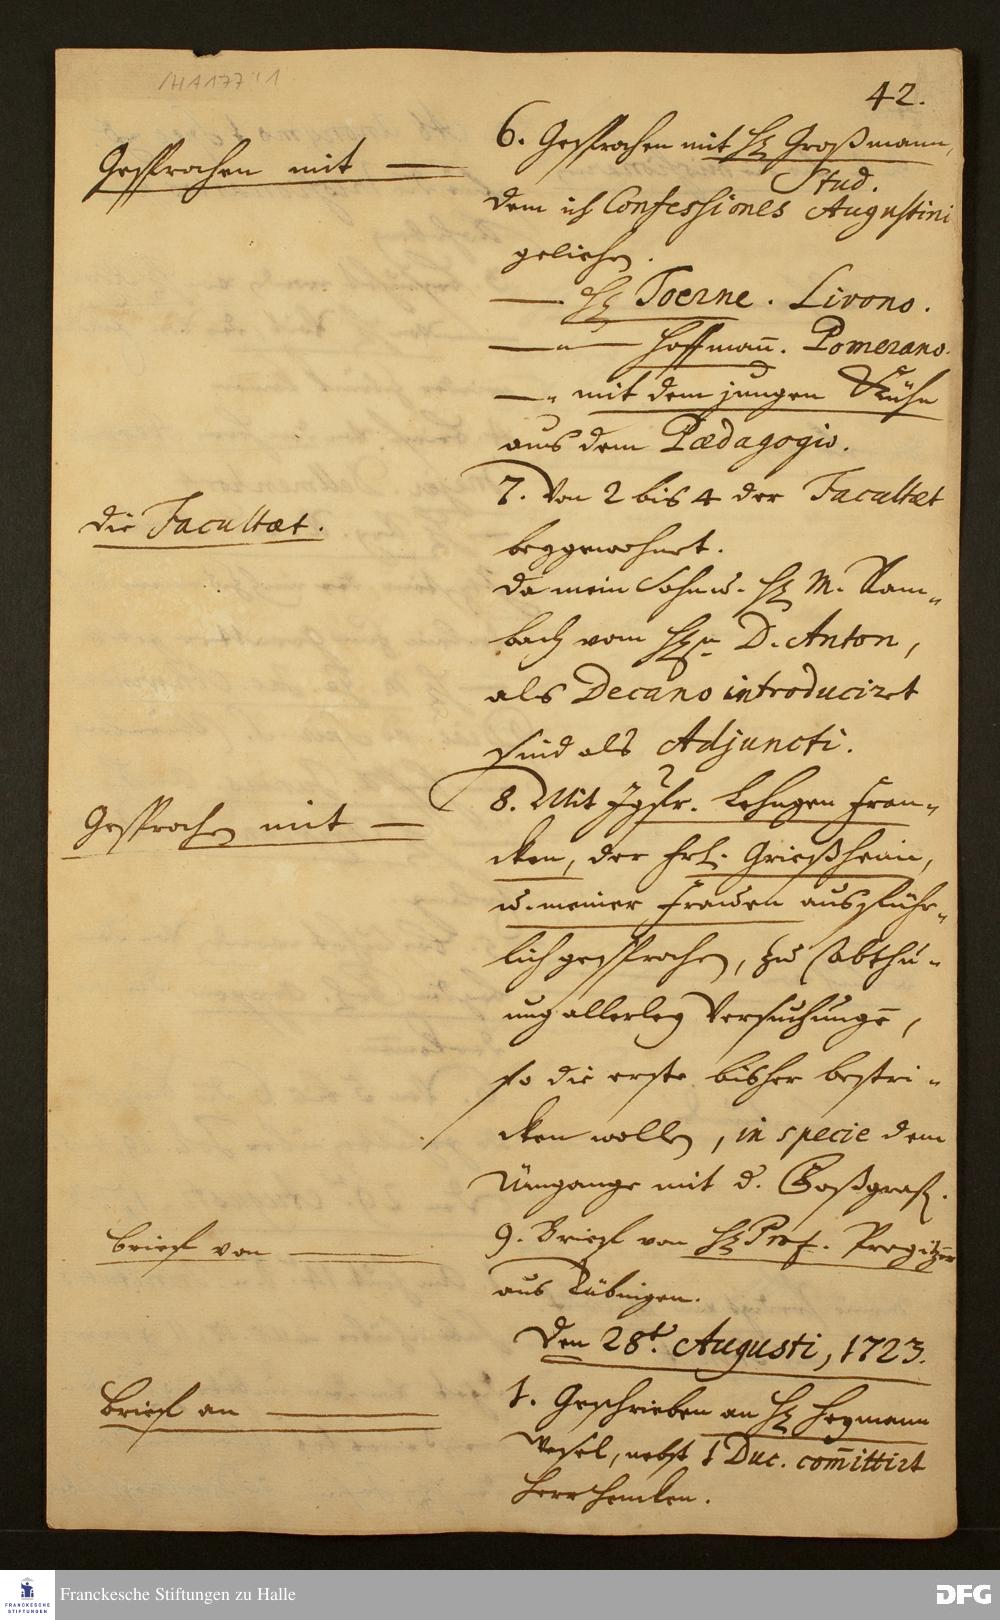 /HA 177 : 1
42.
Gesprochen mit —
6. Gesprochen mit H. Großmann,
Stud.
dem ich Confessiones Augustini
geliehen.
— H. Toerne. Livono.
— " — Hoffmann. Pomerano.
— " mit dem jungen Kühn
aus dem Pædagogio.
die Facultæt.
7. Von 2 bis 4 der Facultæt
beygewohnet.
da mein Sohn u. H. M. Ram-
bach vom Hrn D. Anton,
als Decano introduciret
sind als Adjuncti.
Gesprochen mit —
8. Mit Jgfr. Lehngen Fran-
cken, der Frl. Grießheim,
u. meiner Frauen ausführ-
lich gesprochen, zu Abthu-
ung allerley Versuchungen,
so die erste bisher bestri-
cken wollen, in specie dem
Umgange mit d.
Brief von —
9. Brief von H. Prof. Pregitzer
aus Tübingen.
Den 28t. Augusti, 1723.
Brief an —
1. Geschrieben an H. Heymann
Wesel, nebst 1 Duc. committirt
Herrschencken.
Franckesche Stiftungen zu Halle
FRANCKESCHE
STIFTUNGEN
DFG